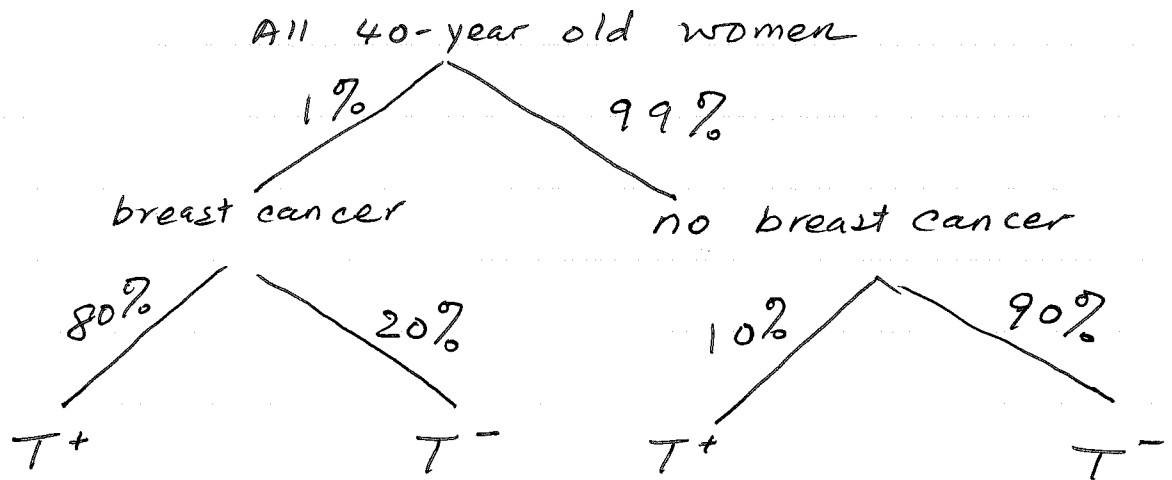 All 40-year old women
1% 99%
breast cancer no breast cancer
80% 20% 10% 90%
T+ T- T+ T-